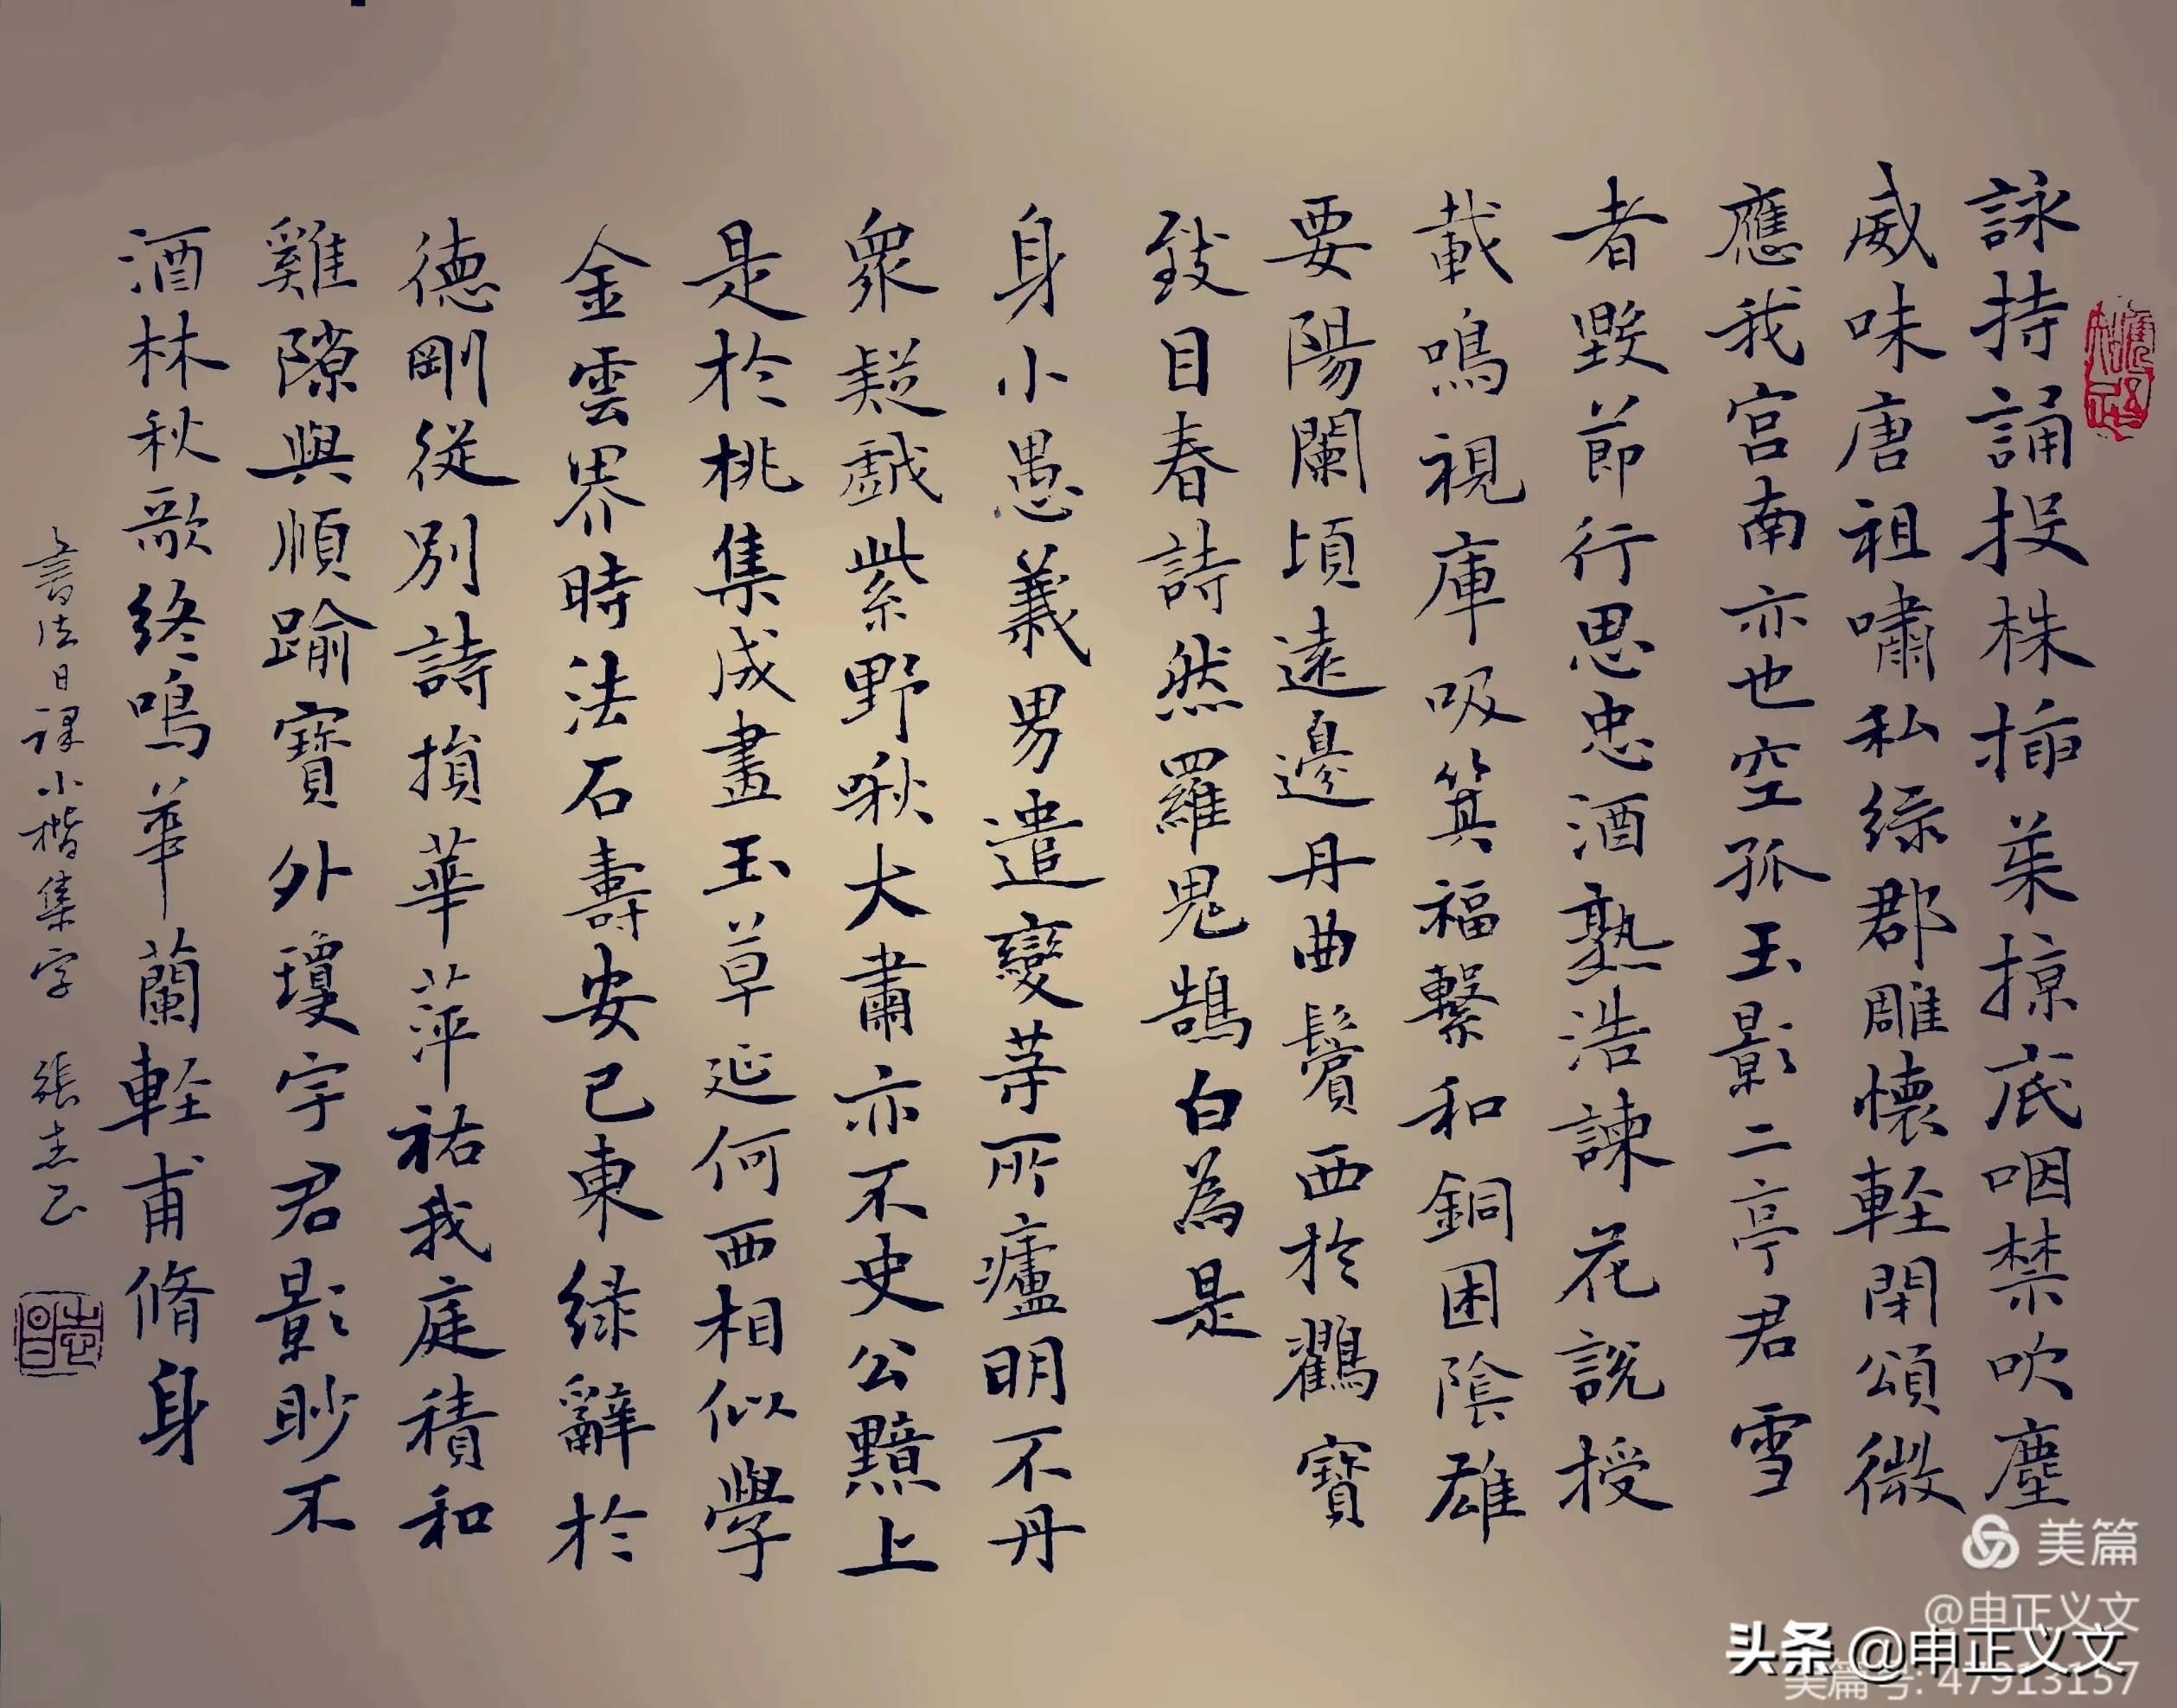 詠持誦投株插茱掠底咽禁吹塵
威味唐祖嘯私綠郡雕懷輕閑頌微
應我宮南亦也空孤玉影二亭君雪
者毀節行思忠酒熟浩諫花說授
載鳴視庫吸箕福繫和銅困陰雄
要陽闌頃遠邊丹曲鬢西於鸛寶
鈘目春詩然羅鬼鵠白為是
身小愚義男遣變等所廬明不丹
眾疑戲紫野啾犬肅亦不史公黯上
是於桃集成畫玉草延何西相似學
金雲界時法石壽安已東綠辭於
德剛從別詩損華萍祐我庭積和
雞隙與順踰寶外瓊字君影眇不
酒林秋歌終鳴華蘭輕甫脩身
書法日課小楷集字 張志昌
美篇
@申正义文
头条 @申正义文
美篇号: 47913157